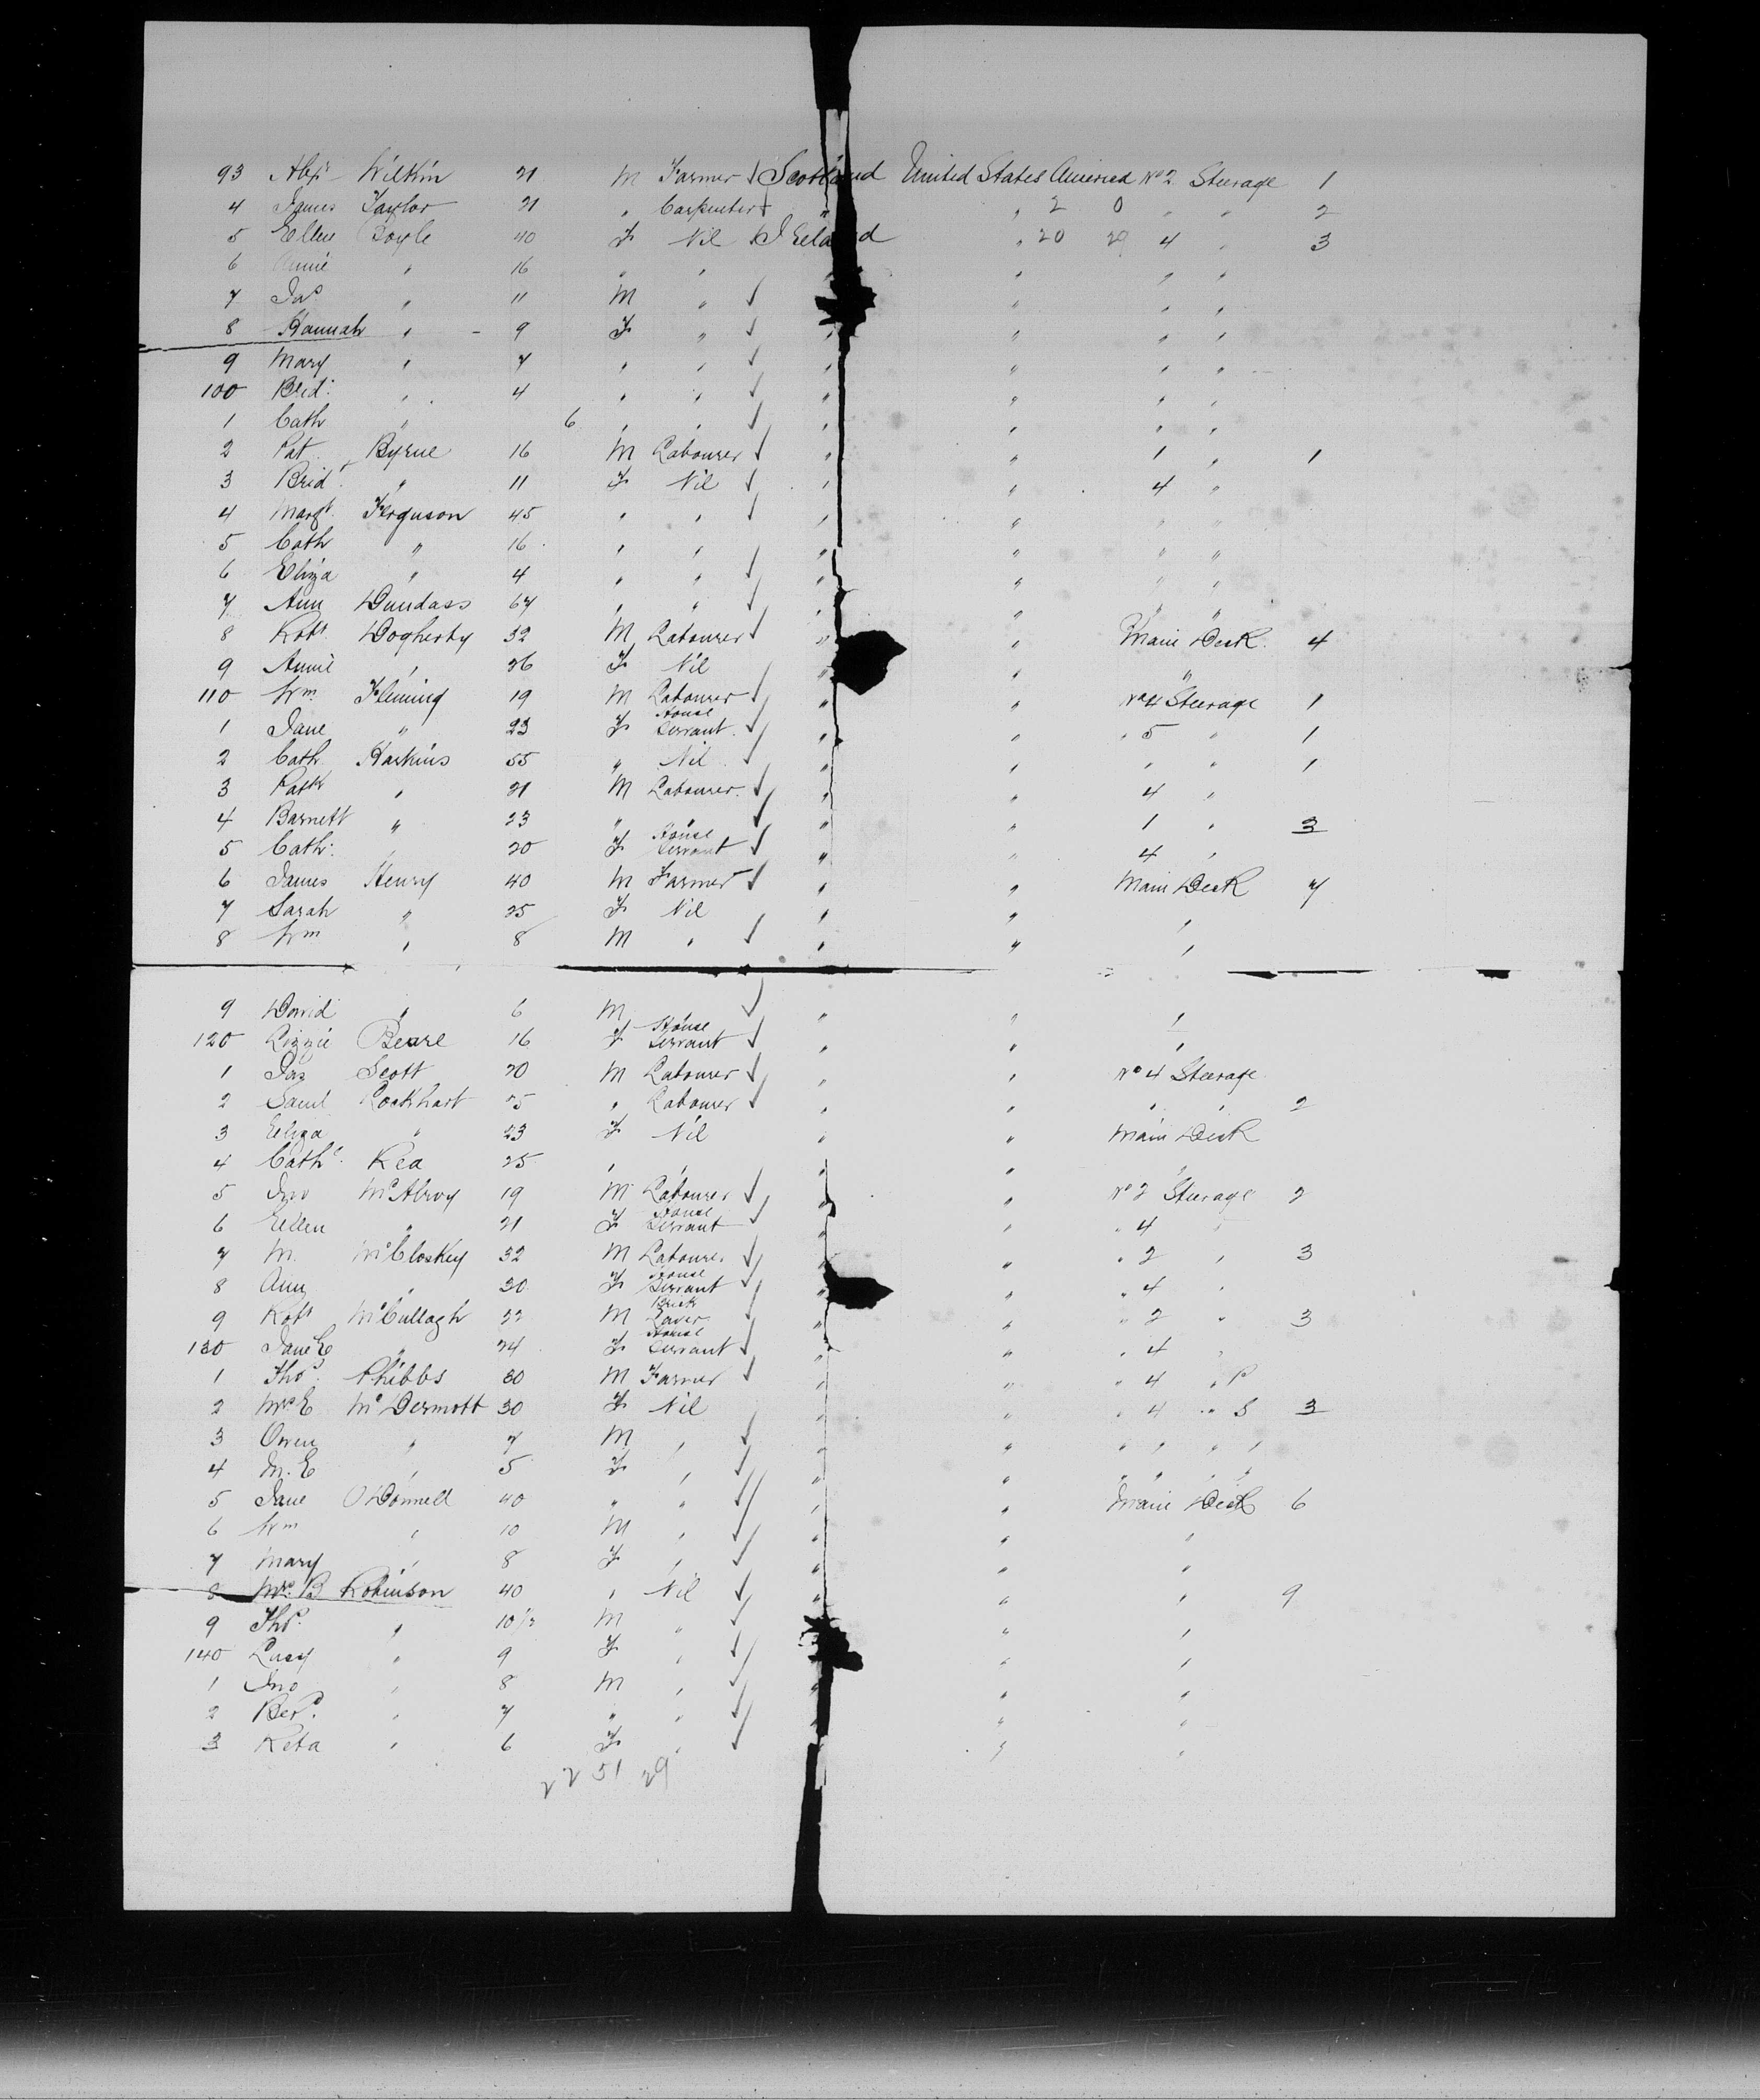 93 Alexr Wilkin 21 M Farmer Scotland United States America No 2 Steerage 1
4 James Taylor 21 " Carpenter " " 2 0 " " 2
5 Ellen Boyle 40 F Nil Ireland " 20 29 4 " 3
6 Annie " 16 " " " " " "
7 Jas " 11 M " " " " "
8 Hannah " - 9 F " " " " "
9 Mary " 7 " " " " " "
100 Brid. " 4 " " " " " "
1 Cath " 6 " " " " " "
2 Pat. Byrne 16 M Labourer " " 1 " 1
3 Bridt " 11 F Nil " " 4 "
4 Margt. Ferguson 45 " " " " " "
5 Cath " 16 " " " " " "
6 Eliza " 4 " " " " " "
7 Ann Dundass 67 " " " " " "
8 Robt. Dogherty 32 M Labourer " " Main Deck 4
9 Annie " 26 F Nil " " "
110 Wm Fleming 19 M Labourer " " No 4 Steerage 1
1 Jane " 23 F House Servant " " " 5 " 1
2 Cath. Harkins 55 " Nil " " " " 1
3 Patk " 21 M Labourer " " 4 "
4 Barnett " 23 " " " " 1 " 3
5 Cath. " 20 F House Servant " " 4 "
6 James Henry 40 M Farmer " " Main Deck 7
7 Sarah " 25 F Nil " " "
8 Wm " 8 M " " " "
9 David " 6 M " " "
120 Lizzie Beare 16 F House Servant " " "
1 Jas Scott 20 M Labourer " " No 4 Steerage
2 Saml Lockhart 25 " Labourer " " " " 2
3 Eliza " 23 F Nil " " Main Deck
4 Cathe. Rea 25 " " " " "
5 Jno McAlroy 19 M Labourer " " No 2 Steerage 2
6 Ellen " 21 F House Servant " " " 4 "
7 M. McCloskey 32 M Labourer " " " 2 " 3
8 Ann " 30 F House Servant " " " 4 "
9 Robt McCullagh 32 M Brick Layer " " " 2 " 3
130 Jane E " 24 F House Servant " " " 4 "
1 Thos. Phibbs 30 M Farmer " " " 4 " P
2 Mrs E McDermott 30 F Nil " " " 4 " S 3
3 Owen " 7 M " " " " " " "
4 M. E " 5 F " " " " " " "
5 Jane O'Donnell 40 " " " " Main Deck 6
6 Wm " 10 M " " " "
7 Mary " 8 F " " " "
8 Mrs. B Robinson 40 " Nil " " " 9
9 Thos. " 10 1/2 M " " " "
140 Lucy " 9 F " " " "
1 Jno " 8 M " " " "
2 Berd. " 7 " " " " "
3 Reta " 6 F " " " "
22 51 29